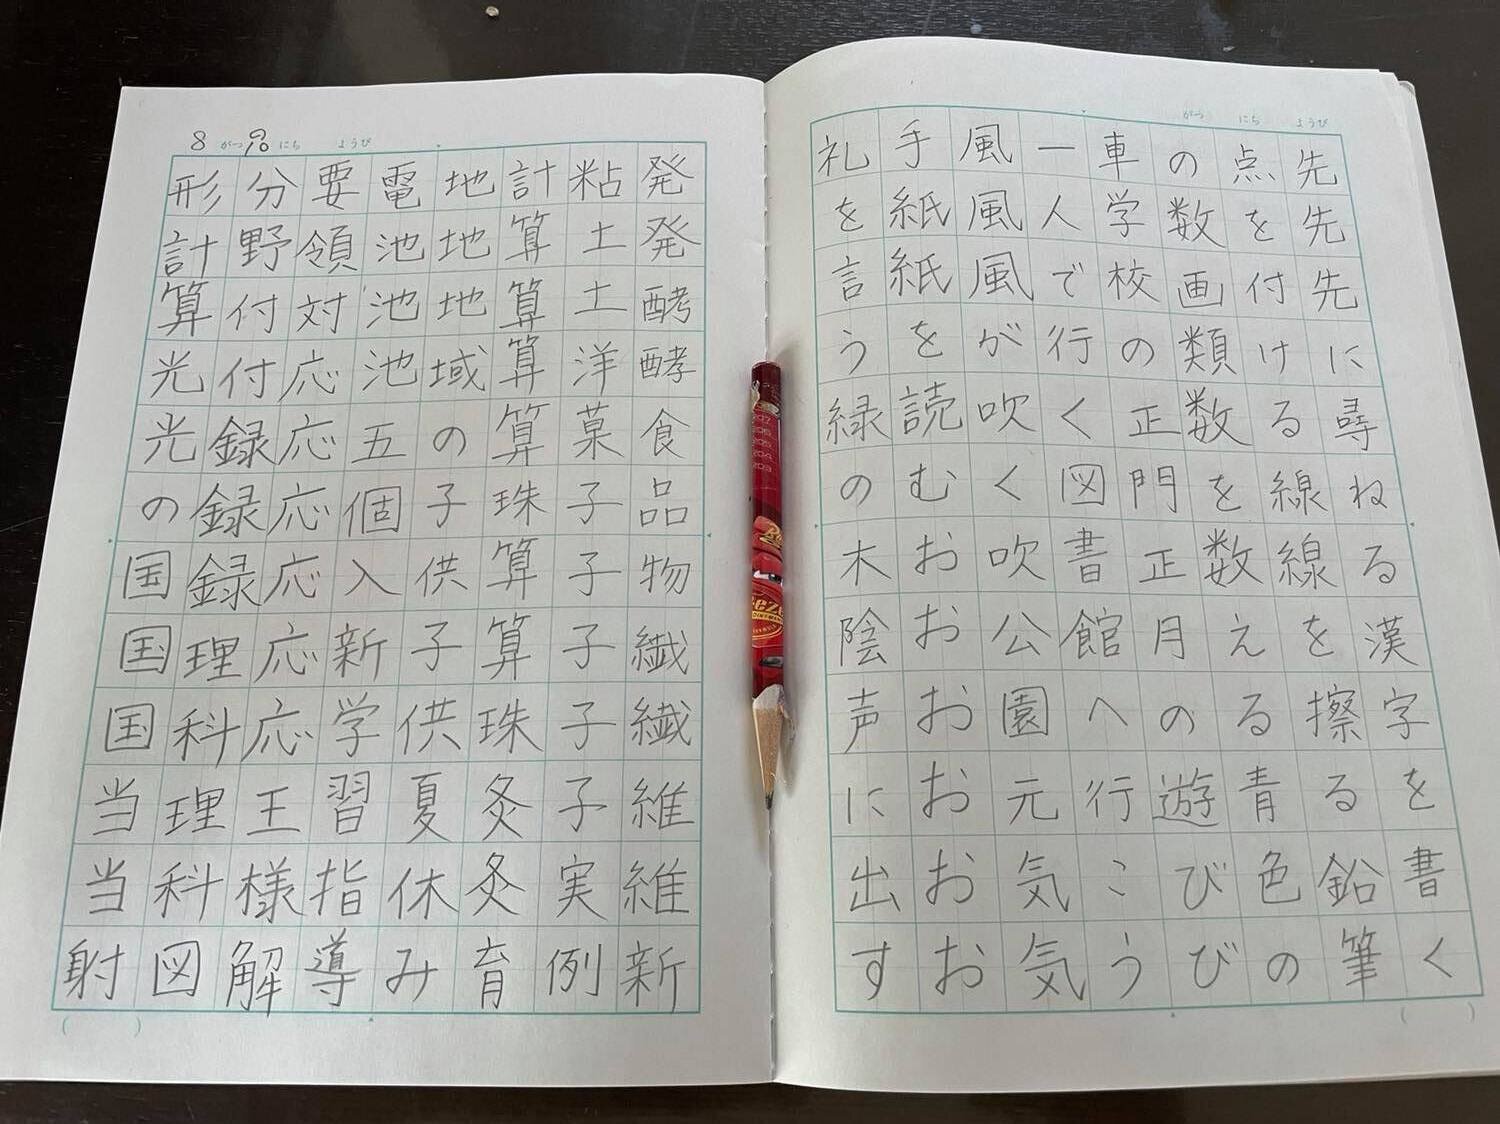 がつ にち ようび
先先先に尋ねる漢字を書く
点を付ける線線を擦る鉛筆
の数画類数を数える青色の
車学校の正門正月の遊びび
一人で行く図書館へ行こう
風風風が吹く吹公園元気気
手紙紙を読むおおおおおお
礼を言う緑の木陰声に出す
8がつ にち ようび
発発酵酵食品物繊繊維維新
粘土土洋菓子子子子子実例
計算算算算珠算算珠灸灸育
地地地域の子供子供夏休み
電池池池五個入新学習指導
要領対応応応応応応王様解
分野付付録録録理科理科図
形計算光光の国国国当当射